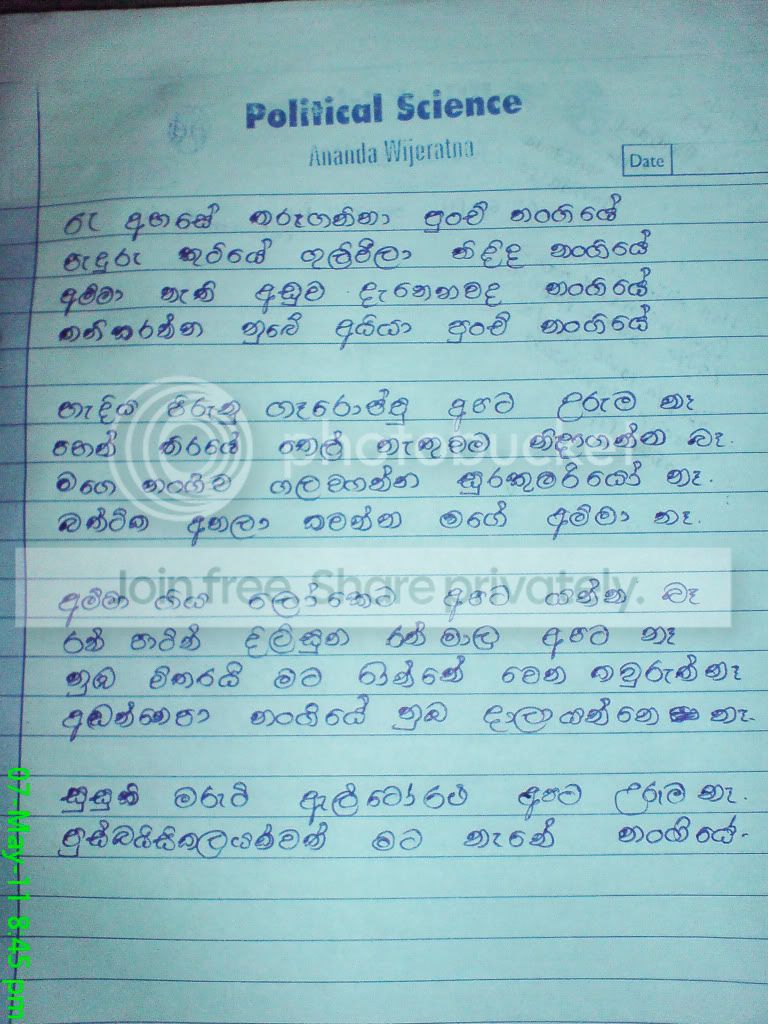 Political Science
Ananda Wijeratna
Date
රෑ අහසේ තරුගනින්නා පුංචි නංගියේ
පැදුරු කුටියේ ගුලිවීලා නිදිද නංගියේ
අම්මා නැති අඩුව දැනෙනවද නංගියේ
තනිකරන්න නුබේ අයියා පුංචි නංගියේ
හැදිය පිරුනු අපට උරුම නෑ
පහන් තිරයේ තෙල් නැතුවම නිදාගන්න බෑ.
මගෙ නංගිව ගලවගන්න සුරකුමරියෝ නෑ.
බණ්ටික අනලා කවන්න මගේ අම්මා නෑ.
අම්මා ගිය ලෝකෙට අපට යන්න බෑ
රන් පාටින් දිලිසුන රන් මාල අපට නෑ
නුඹ විතරයි මට ඉන්නේ වෙන කවුරුන් නෑ
අඬන්නෙපා නංගියේ නුබ දාලා යන්නෙ නෑ.
සුසුකි මරුටි ඇල්ටෝ රථ අපට උරුම නෑ.
පුස්බයිසිකලයක්වත් මට නැනේ නංගියේ.
photobucket
Join free. Share privately.
07-May-11 8:45 pm